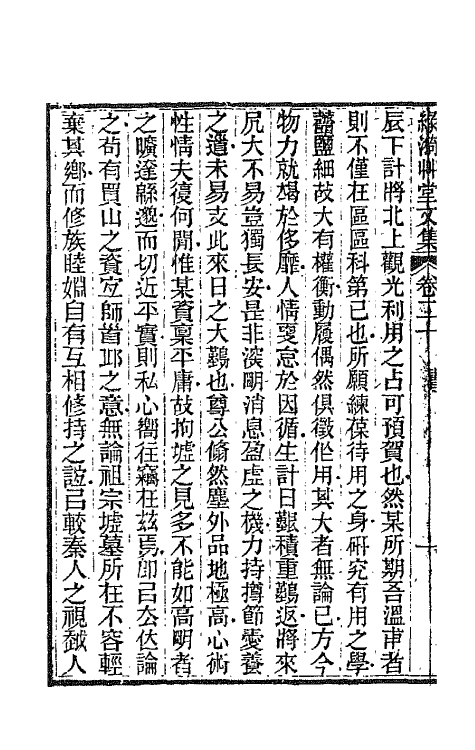 綠漪艸堂文集 卷二十
辰下計將北上觀光利用之占可預賀也然某所期吾溫甫者
則不僅在區區科第已也所願練葆待用之身研究有用之學
鹽細故大有權衡動履偶然俱徵作用其大者無論已方今
物力就竭於侈靡人情耎怠於因循生計日艱積重難返將來
尻大不易豈獨長安是非淡明消息盈虛之機力持撙節愛養
之道未易支此來日之大難也尊公翛然塵外品地極高心術
性情夫復何閒惟某資稟平庸故拘墟之見多不能如高明者
之曠遠緜邈而切近平實則私心嚮往竊在玆焉卽㠯公伙論
之苟有買山之資宜師首邱之意無論祖宗墟墓所在不容輕
棄其鄉而修族睦婣自有互相修持之誼㠯較秦人之視越人